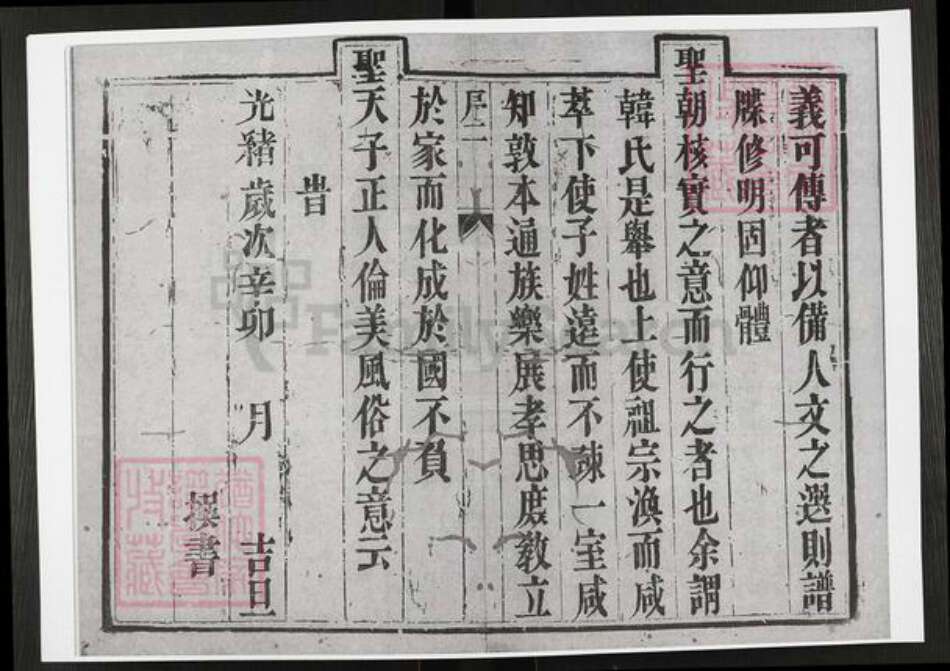 義可傳者以備人文之選則譜
牒修明固仰體
聖朝核實之意而行之者也余謂
韓氏是舉也上使祖宗渙而咸
萃下使子姓遠而不疎一室咸
知敦本通族樂展孝思庶敎立
序二
於家而化成於國不負
聖天子正人倫美風俗之意云
旹
光緒歲次辛卯 月 吉旦
撰書
FamilySearch